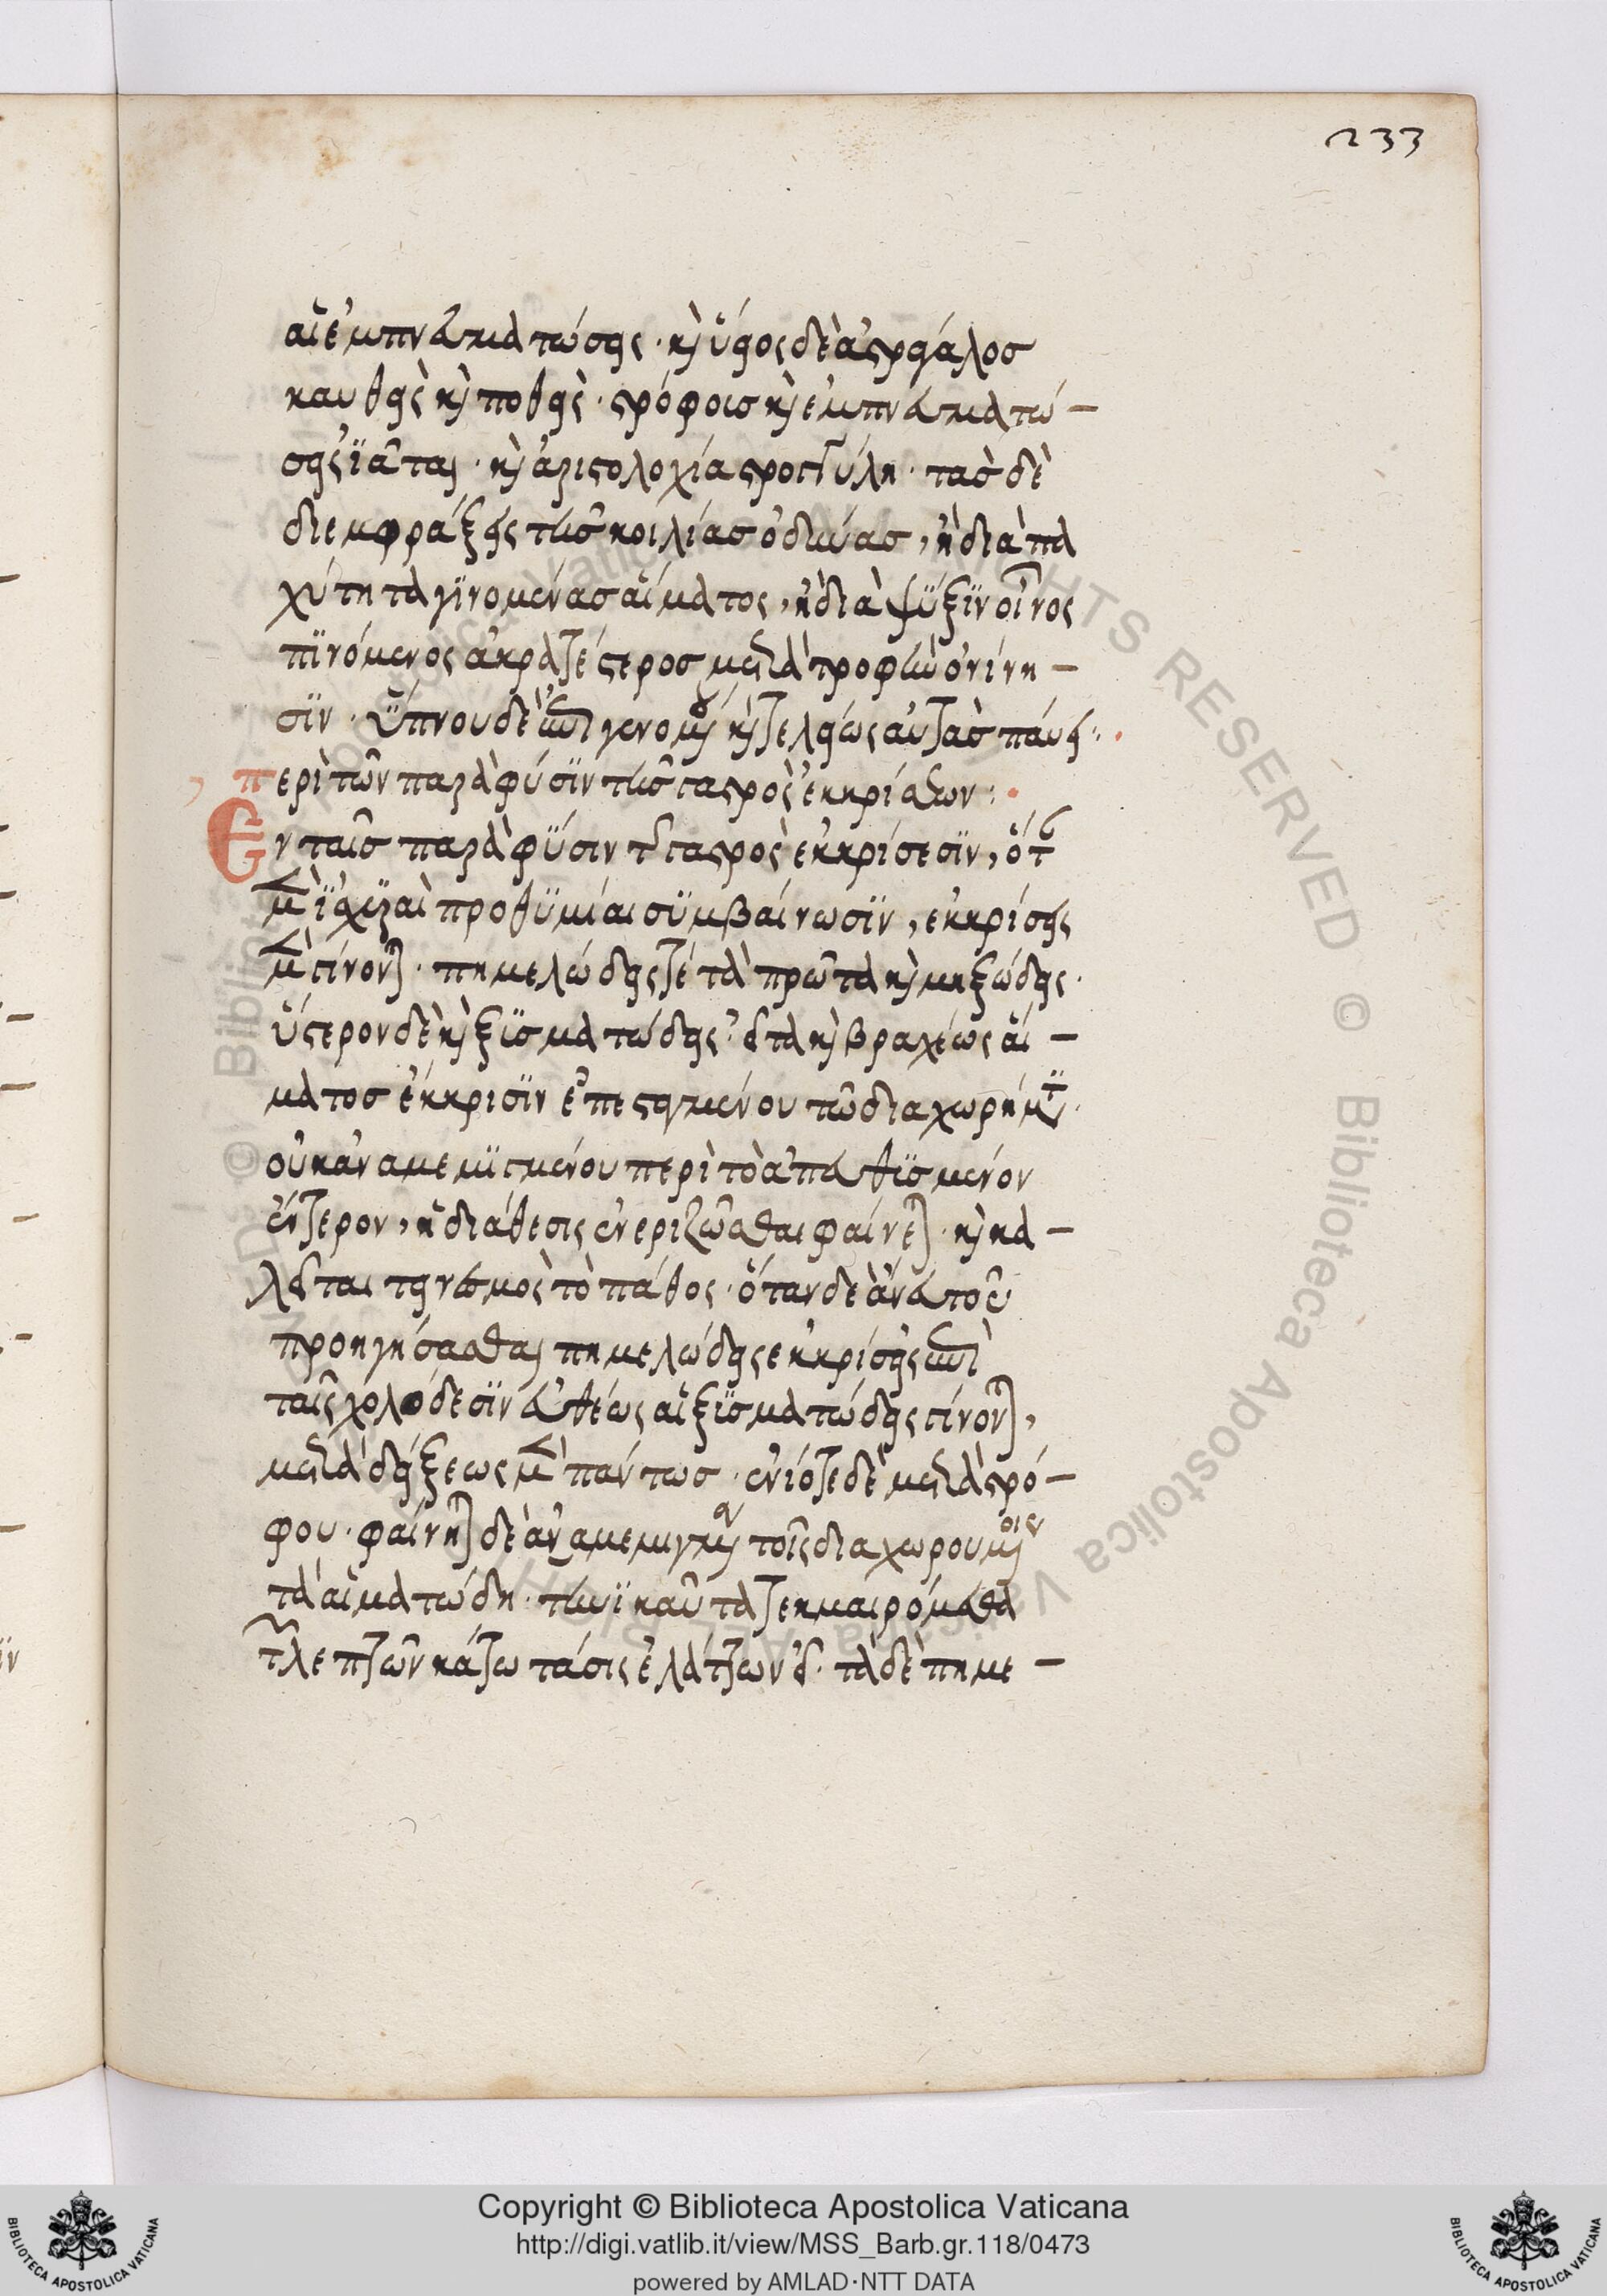 233
αἱ ἐμπνευματώσεις· καὶ ὕει ὁς δὲ ἀστράγαλος
καυθεὶς καὶ ποθεὶς· στρόφοις καὶ ἐμπνευματώ-
σεις ἰᾶται· καὶ ἀριστολοχία στρογγύλη· τὰς δὲ
δι' ἐμφράξεις τῆς κοιλίας ὀδύνας, ἢ διὰ πα
χύτητα γινομένας αἵματος, ἢ διὰ ψύξιν οἶνος
πινόμενος ἀκρατέστερος μετὰ τροφὴν ὀνίνη-
σιν· ὕπνου δὲ ἐπιγενομένου καὶ τελείως αὐτὰς παύει:
περὶ τῶν παρὰ φύσιν τῆς γαστρὸς ἐκκρίσεων:
Ἐν ταῖς παρὰ φύσιν τῆς γαστρὸς ἐκκρίσεσιν, ὅταν
προθυμίαι συμβαίνωσιν, ἐκκρίσεις
μὲν γίνονται· πημελώδεις τὲ τὰ πρῶτα καὶ μυξώδεις·
ὕστερον δὲ καὶ ξυσματώδεις· εἶτα καὶ βραχέως αἵ-
ματος ἔκκρισιν ἐπεστημένου τῶ διαχωρήματι·
οὐκ ἀναμεμιγμένου περὶ τὸ ἀπευθυσμένον
ἔντερον, ἡ διάθεσις ἐνεριζῶσθαι φαίνεται· καὶ κα-
λεῖται τεινεσμὸς τὸ πάθος· ὅταν δὲ ἄνευ τοῦ
προηγήσασθαι πημελώδεις ἐκκρίσεις ἐπὶ
ταῖς χολώδεσιν εὐθέως αἱ ξυσματώδεις γίνονται,
μετὰ δήξεως μὲν πάντως· ἐνίοτε δὲ μετὰ στρό-
φου· φαίνηται δὲ ἀναμεμιγμένα τοῖς διαχωρουμένοις
τὰ αἱματώδη· τηνικαῦτα τεκμαιρόμεθα
τῶν λεπτῶν κάτω τάσις ἐλάττων εἶ· τὰ δὲ πημε-
Copyright © Biblioteca Apostolica Vaticana
http://digi.vatlib.it/view/MSS_Barb.gr.118/0473
powered by AMLAD·NTT DATA
BIBLIOTECA APOSTOLICA VATICANA
BIBLIOTECA APOSTOLICA VATICANA